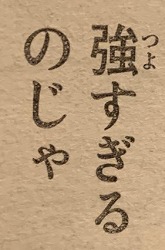 強すぎる
のじゃ
つよ